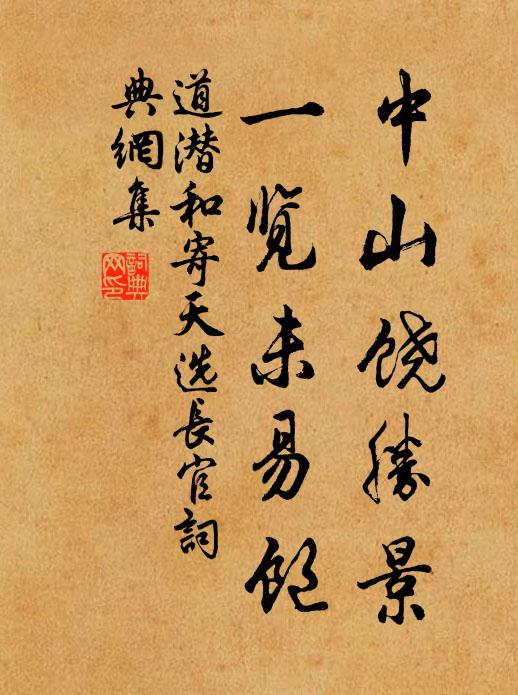 中山饶勝景
一览未易飽
道潜和寄天选長官詞
典網集
詞典网印